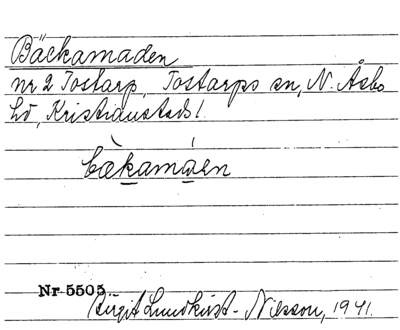 Bäckamaden
nr 2 Tostarp, Tostarps sn, N. Åsbo
hd, Kristianstads l.
bæ̀kamáen
Nr 5505
Birgit Lundkvist-Nilsson, 1941.